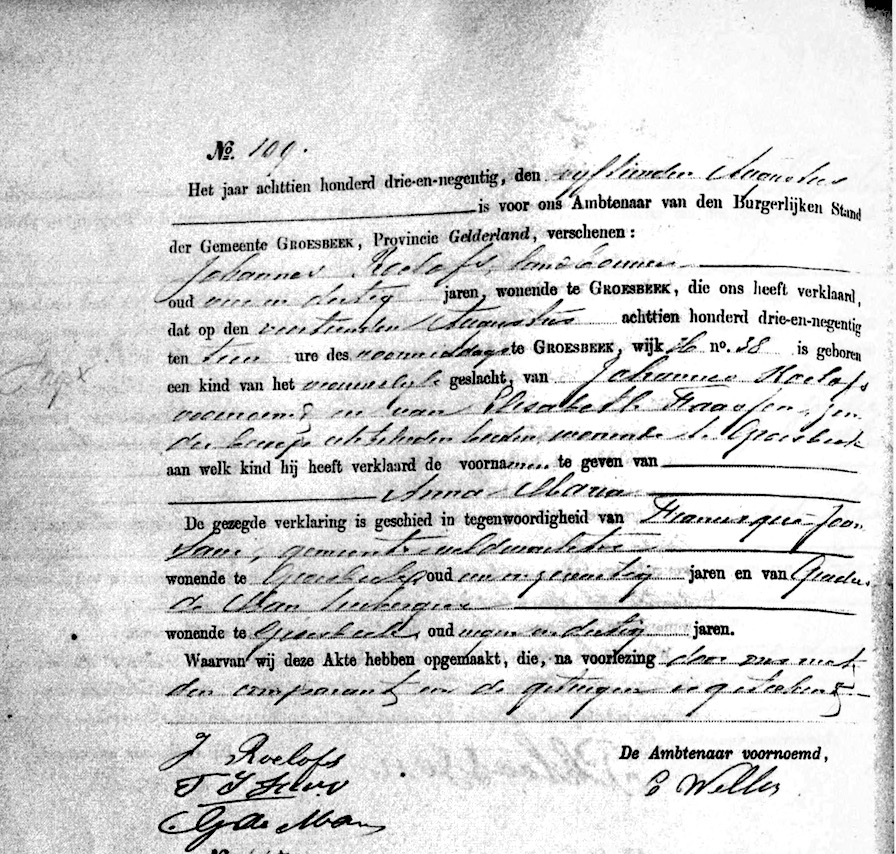 No. 109.
Het jaar achttien honderd drie-en-negentig, den vyftienden Augustus
is voor ons Ambtenaar van den Burgerlijken Stand
der Gemeente GROESBEEK, Provincie Gelderland, verschenen:
Johannes Roelofs, landbouwer
oud een en dertig jaren, wonende te GROESBEEK, die ons heeft verklaard,
dat op den veertienden Augustus achttien honderd drie-en-negentig
ten tien ure des voormiddags te GROESBEEK, wijk no. 38 is geboren
een kind van het vrouwelijk geslacht, van Johannes Roelofs
voornoemd en van Elisabeth zon
der beroep echtelieden beiden wonende te Groesbeek
aan welk kind hij heeft verklaard de voornamen te geven van
Anna Maria
De gezegde verklaring is geschied in tegenwoordigheid van
gemeenteveldwachter
wonende te Groesbeek oud jaren en van Gradus
de Man
wonende te Groesbeek, oud negen en dertig jaren.
Waarvan wij deze Akte hebben opgemaakt, die, na voorlezing door ons met
den comparant en de getuigen is geteekend
De Ambtenaar voornoemd,
J Roelofs
G de Man